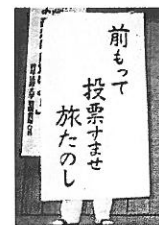 前もって
投票すませ
旅たのし